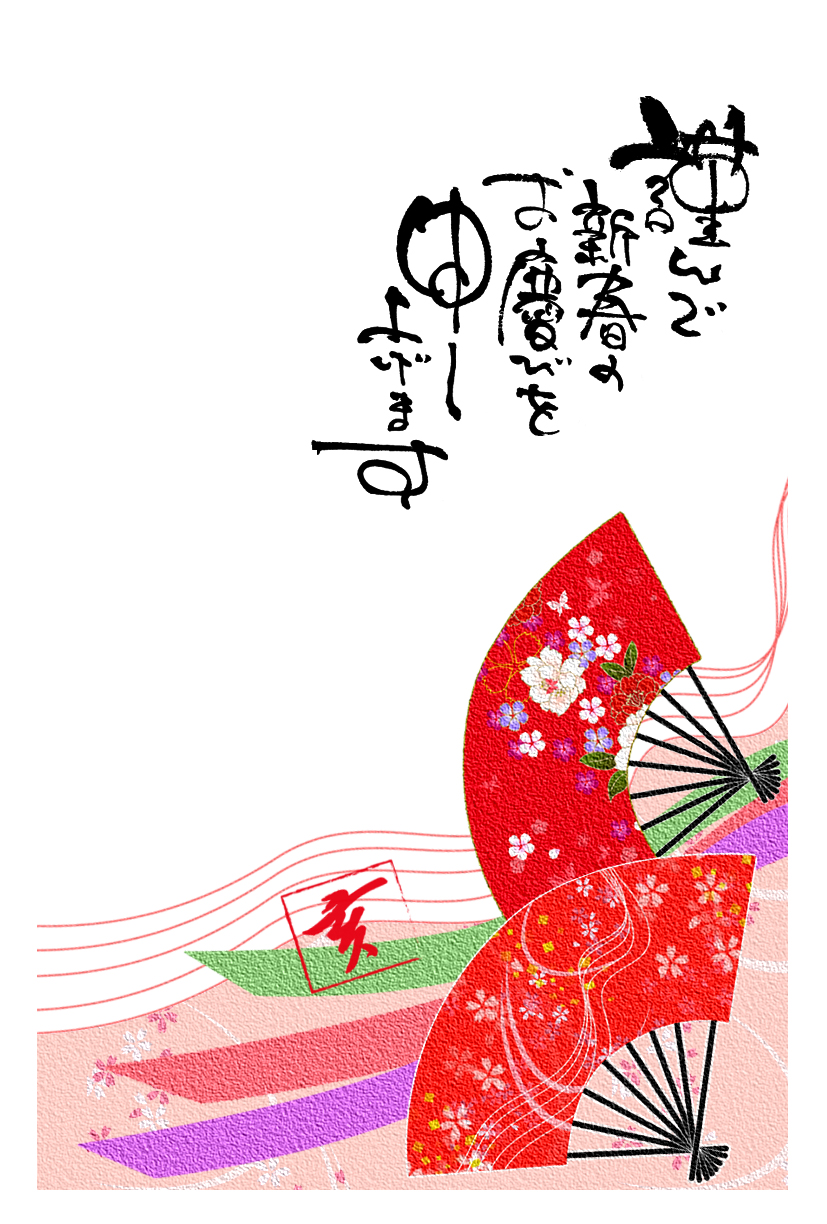 謹んで
新春の
お慶びを
申し
上げます
亥